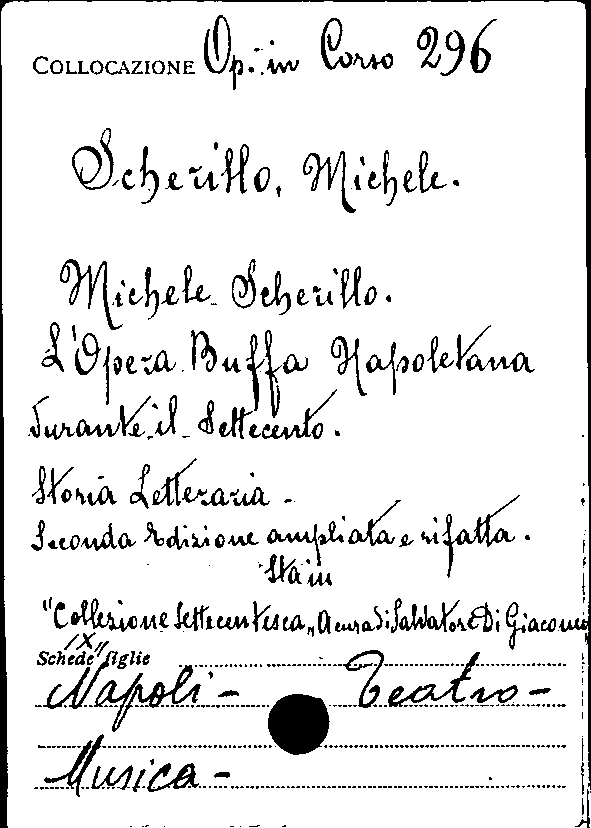 COLLOCAZIONE Op. in Corso 296
Scherillo, Michele.
Michele Scherillo.
L'Opera Buffa Napoletana
durante il Settecento.
Storia Letteraria -
Seconda Edizione ampliata e rifatta.
Sta in
"Collezione Settecentesca„ A cura di Salvatore Di Giacomo
IX
Schede figlie
Napoli - Teatro -
Musica -